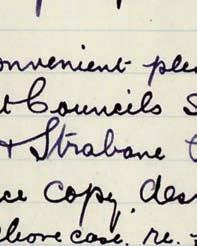 onvenient ple
t Councils S
+ Strabane
ce copy des
hone case. re.